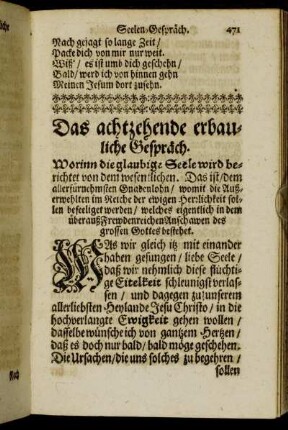 Seelen-Gespräch. 471
Nach gejagt so lange Zeit /
Packe dich von mir nur weit.
Wiß / es ist umb dich geschehn /
Bald / werd ich von hinnen gehn
Meinen Jesum dort zusehn.
Das achtzehende erbau-
liche Gespräch.
Worinn die glaubige Seele wird be-
richtet von dem wesentlichen. Das ist / dem
allerfürnehmsten Gnadenlohn / womit die Auß-
erwehlten im Reiche der ewigen Herrlichkeit sol-
len beseeliget werden / welches eigentlich in dem
überauß Frewdenreichen Anschawen des
grossen Gottes bestehet.
WAs wir gleich itz mit einander
haben gesungen / liebe Seele /
daß wir nehmlich diese flüchti-
ge Eitelkeit schleunigst verlas-
sen / und dagegen zu unserem
allerliebsten Heylande Jesu Christo / in die
hochverlangte Ewigkeit gehen wollen /
dasselbe wünsche ich von gantzem Hertzen /
daß es doch nur bald / bald möge geschehen.
Die Ursachen / die uns solches zu begehren /
sollen